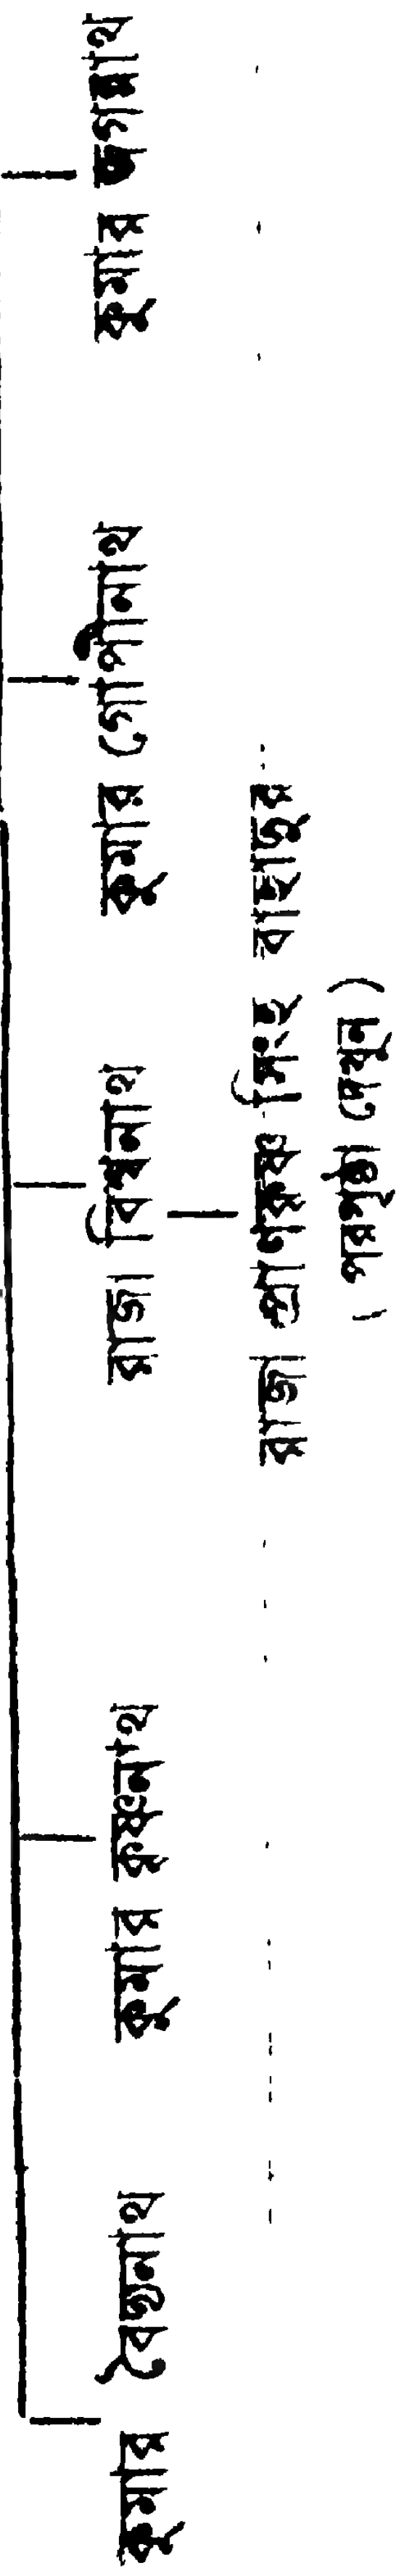 কুমার বৈদ্যনাথ
কুমার কৃষ্ণনাথ
রাজা বিশ্বনাথ
কুমার গোপীনাথ
কুমার জগন্নাথ
রাজা প্রাণকৃষ্ণ সিংহ বাহাদুর
( পরপৃষ্ঠা দেখুন )